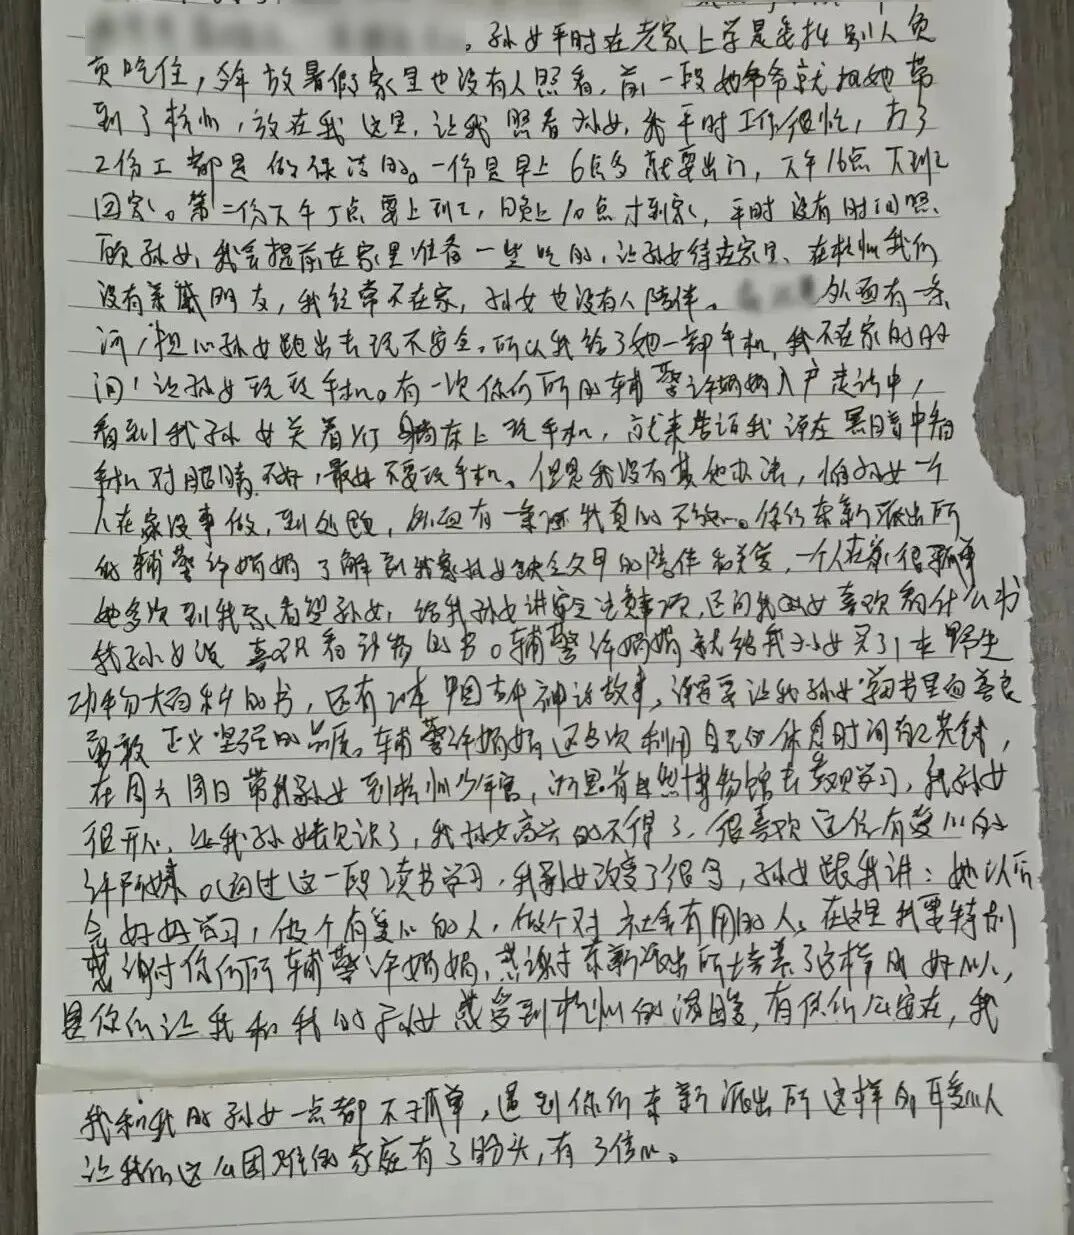 。孙女平时在老家上学是委托别人负
责吃住，今年放暑假家里也没有人照看，前一段她爷爷就把她带
到了杭州，放在我这里，让我照看孙女，我平时工作很忙，打了
2份工都是做保洁的。一份是早上6点多就要出门，下午16点下班
回家。第二份下午5点要上班，晚上10点才到家，平时没有时间照
顾孙女，我会提前在家里准备一些吃的，让孙女待在家里、在杭州我们
没有亲戚朋友，我经常不在家，孙女也没有人陪伴。外面有一条
河，担心孙女跑出去玩不安全。所以我给了她一部手机，我不在家的时
间，让孙女玩玩手机。有一次你们所的辅警许娟娟入户走访中，
看到我孙女关着灯躺床上玩手机，就来告诉我说在黑暗中看
手机对眼睛不好，最好不要玩手机。但是我没有其他办法，怕孙女一个
人在家没事做，到处跑，外面有一条河我真的不放心。你们东新派出所
的辅警许娟娟了解到我家孙女缺全父母的陪伴和关爱，一个人在家很孤单
她多次到我家看望孙女，给我孙女讲安全注意事项，还问我孙女喜欢看什么书
我孙女说喜欢看动物的书。辅警许娟娟就给我孙女买了1本野生
动物大百科的书，还有2本中国古代神话故事，说是要让我孙女学习书里面善良
勇敢正义坚强的品质。辅警许娟娟还多次利用自己的休息时间自己花钱，
在周六周日带我孙女到杭州少年宫，浙江省自然博物馆去参观学习，我孙女
很开心，让我孙女长见识了，我孙女高兴的不得了，很喜欢这位有爱心的
许阿姨。通过这一段读书学习，我孙女改变了很多，孙女跟我讲：她以后
会好好学习，做个有爱心的人，做个对社会有用的人。在这里我要特别
感谢你们所辅警许娟娟，感谢东新派出所培养了这样的好人，
是你们让我和我的孙女感受到杭州的温暖，有你们公安在，我
我和我的孙女一点都不孤单，遇到你们东新派出所这样的好人
让我们这么困难的家庭有了盼头，有了信心。